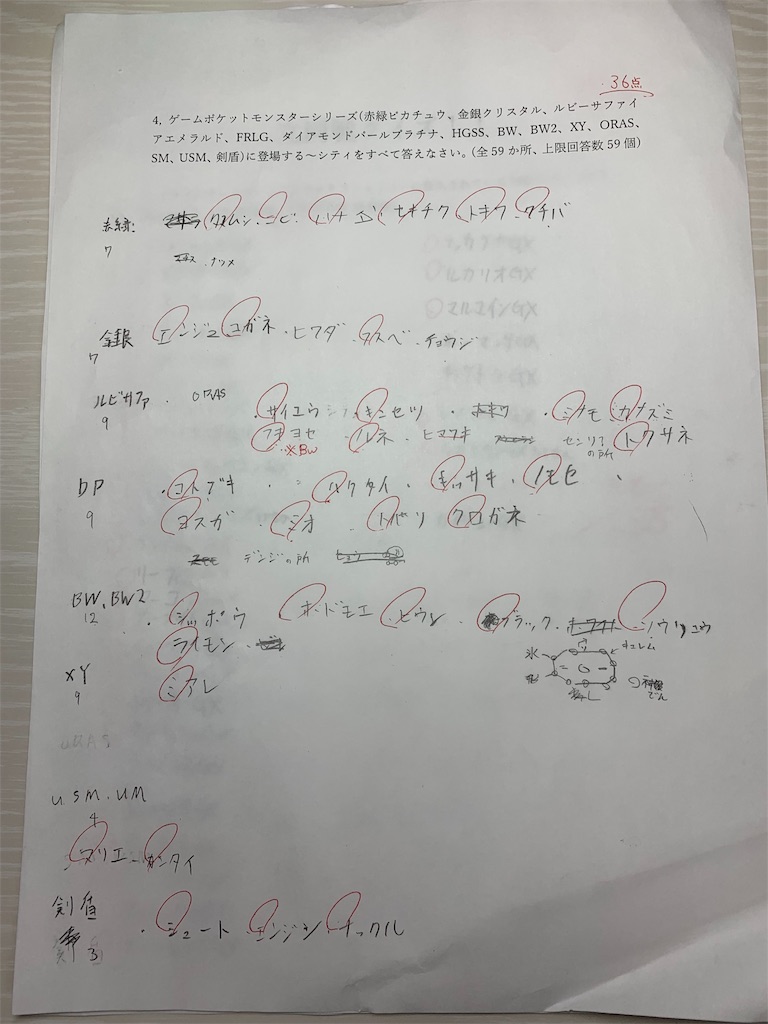 36点
4, ゲームポケットモンスターシリーズ(赤緑ピカチュウ、金銀クリスタル、ルビーサファイ
アエメラルド、FRLG、ダイアモンドパールプラチナ、HGSS、BW、BW2、XY、ORAS、
SM、USM、剣盾)に登場する~シティをすべて答えなさい。(全59か所、上限回答数59個)
赤緑: タマムシ・ニビ・ハナダ・セキチク・トキワ・クチバ
7 ・ナツメ
金銀 エンジュ・コガネ・ヒワダ・フスベ・チョウジ
7
ルビサファ・ORAS ・サイユウシティ・キンセツ・ ・ミナモ・カナズミ
9 フキヨセ・ルネ・ヒマワキ センリの所 トウサネ
※BW
DP ・コトブキ・ハクタイ・キッサキ・ノモセ、
9 ヨスガ・ミオ・トバリ クロガネ
デンジの所
BW、BW2 ・シッポウ ホドモエ・ヒウン・ブラック・ソウリュウ
12 ライモン・
XY ミアレ
9
氷 キュレム
U.SM.UM
4
マリエ・カンタイ
剣盾 ・シュート エンジン ナックル
3